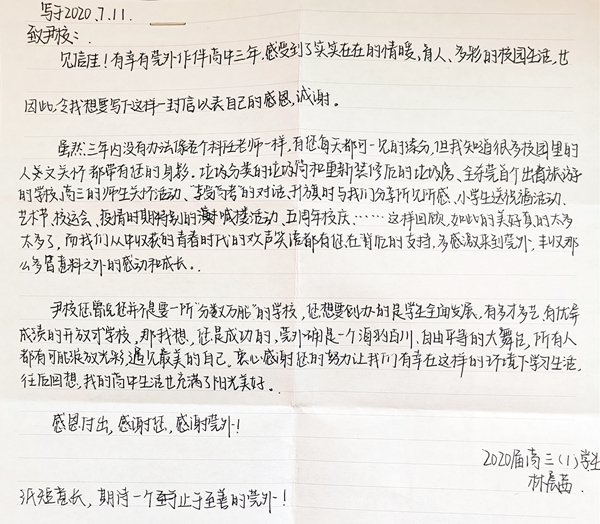 写于2020.7.11.
致尹校：
见信佳！有幸有莞外作伴高中三年，感受到了实实在在的情暖，育人、多彩的校园生活，也
因此，令我想要写下这样一封信以表自己的感恩，诚谢。
虽然三年内没有办法像各个科任老师一样，有您每天都可一见的缘分，但我知道很多校园里的
人文关怀都带有您的身影。垃圾分类的垃圾筒和重新装修后的垃圾房、全东莞首个出省旅游
的学校、高三的师生关怀活动、与高考的对话、升旗时与我们分享所见所感、小学生送祝福活动、
艺术节、校运会、疫情时期特别的活动、五周年校庆……这样回顾，如此的美好真的太多
太多了，而我们从中收获的青春时代的欢声笑语都有您在背后的支持，多感激来到莞外，丰收那
么多意料之外的感动和成长。
尹校您曾说您并不是要一所“分数万能”的学校，您想要到办的是学生全面发展，有多才多艺、有优异
成绩的开放式学校，那我想，您是成功的，莞外确是一个海纳百川、自由平等的大舞台，所有人
都有可能绽放光彩遇见最美的自己。衷心感谢您的努力让我们有幸在这样的环境下学习生活，
往后回想，我的高中生活也充满了阳光美好。
感恩付出，感谢您，感谢莞外！
2020届高三（1）学生
林晨茜
纸短意长，期待一个至于止于至善的莞外！